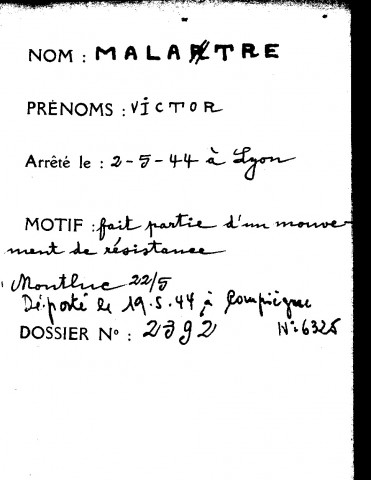 NOM : MALARTRE
PRÉNOMS : VICTOR
Arrêté le : 2-5-44 à Lyon
MOTIF : fait partie d'un mouve-
ment de résistance
Montluc 22/5
Déporté le 19.5.44 à Compiègne
DOSSIER N° : 2392 N° 6325